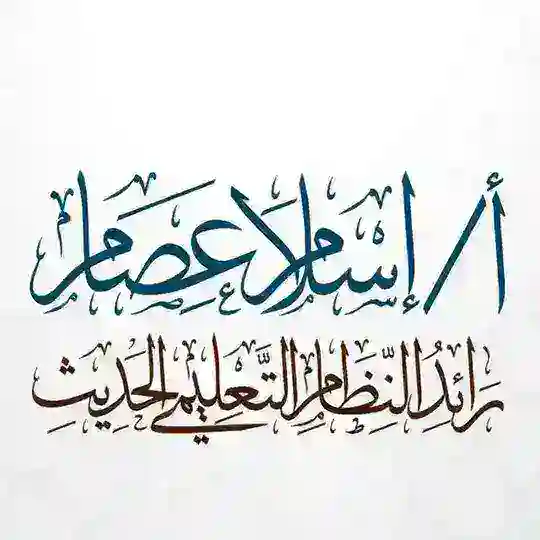 أ/ إسلام عصام
رَائِدُ النِّظَامِ التَّعْلِيمِي الحَدِيثِ